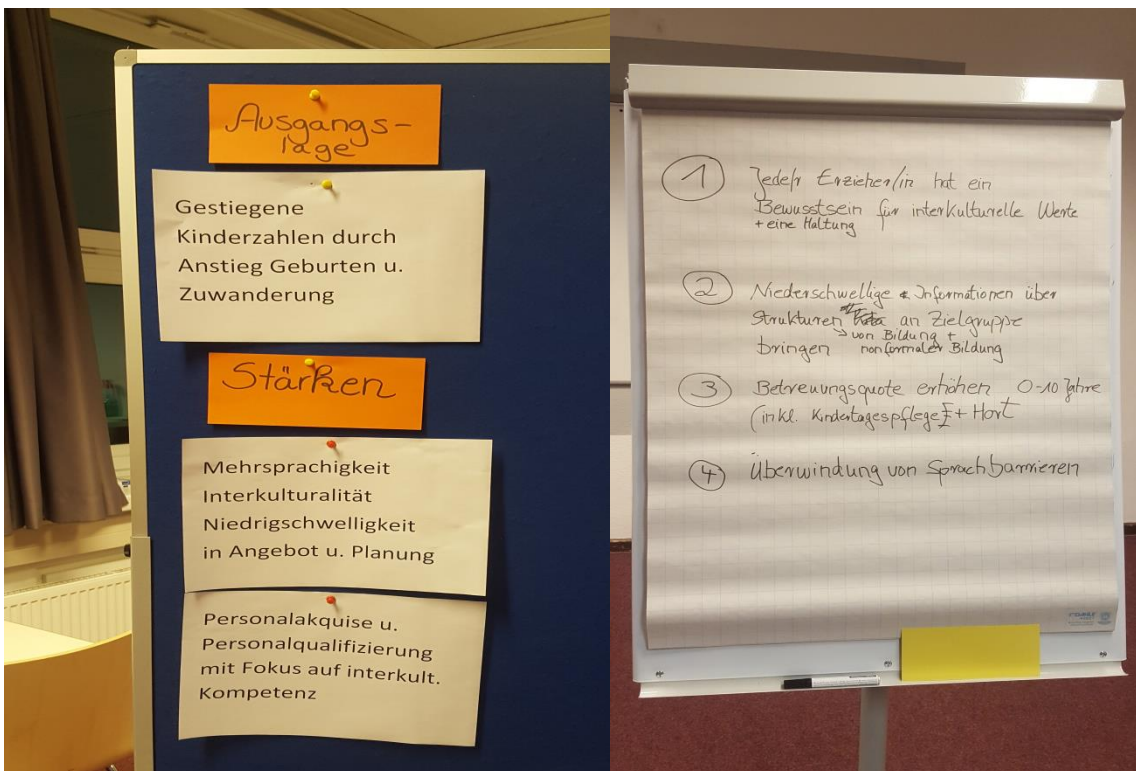 Ausgangs-
lage
Gestiegene
Kinderzahlen durch
Anstieg Geburten u.
Zuwanderung
Stärken
Mehrsprachigkeit
Interkulturalität
Niedrigschwelligkeit
in Angebot u. Planung
Personalakquise u.
Personalqualifizierung
mit Fokus auf interkult.
Kompetenz
1 Jede/r Erzieher/in hat ein
Bewusstsein für interkulturelle Werte
+ eine Haltung
2 Niederschwellige Informationen über
Strukturen an Zielgruppe
von Bildung +
bringen nonformaler Bildung
3 Betreuungsquote erhöhen 0-10 Jahre
(inkl. Kindertagespflege + Hort
4 Überwindung von Sprachbarrieren